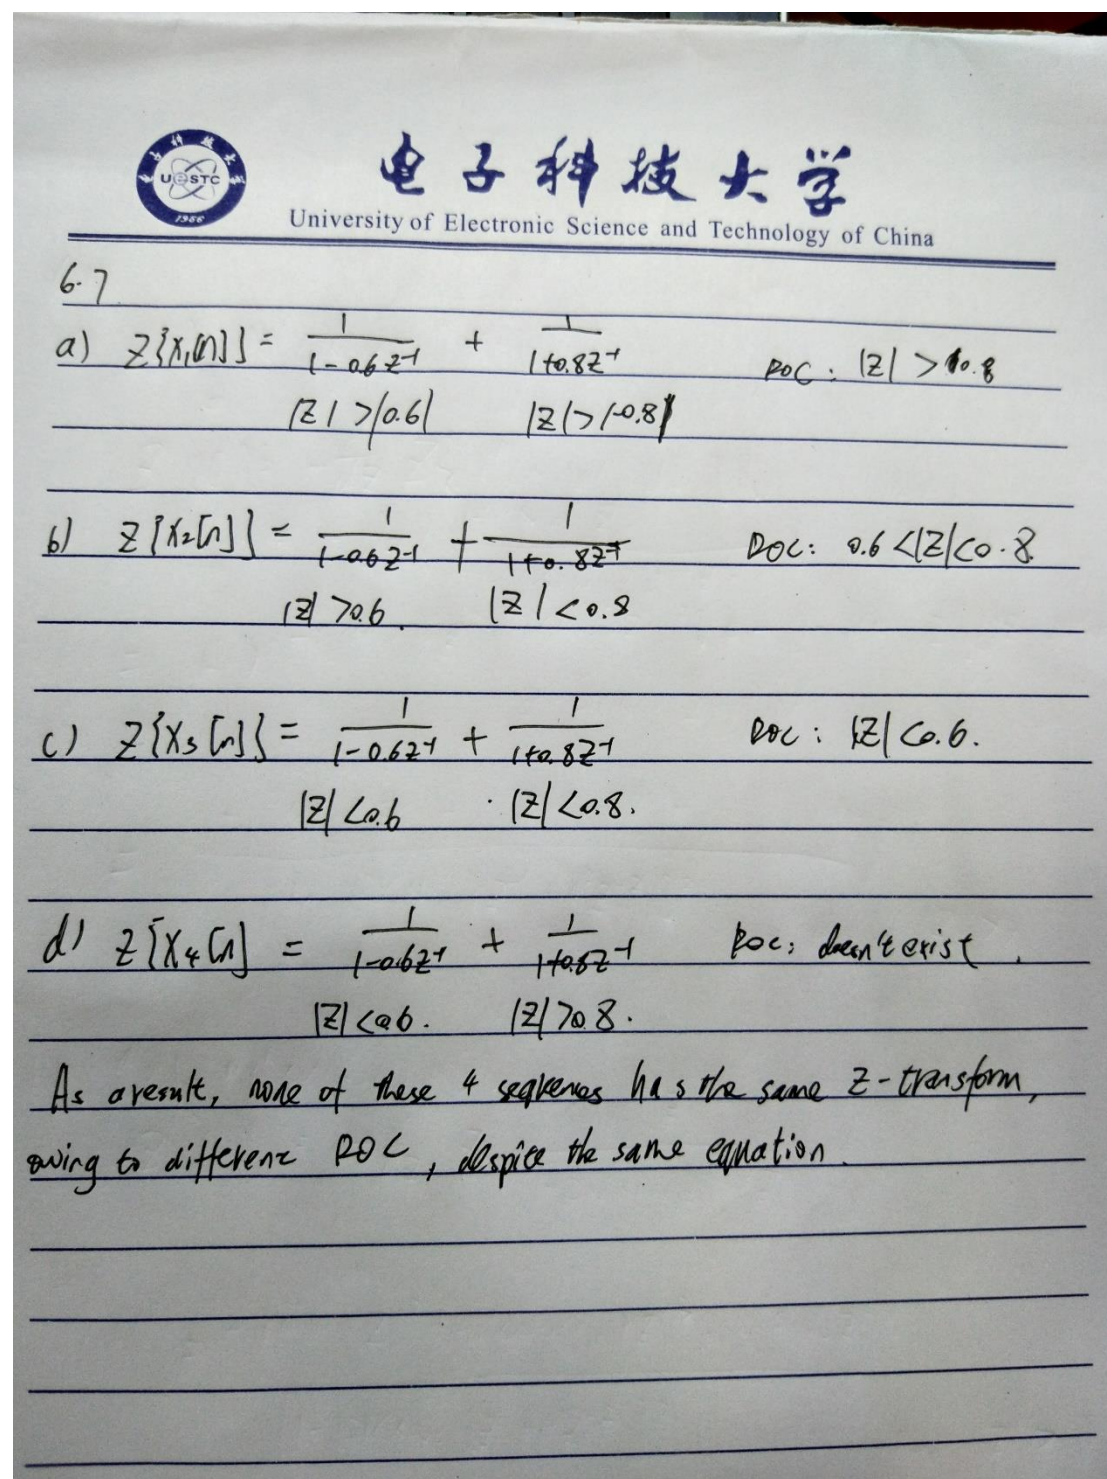 电子科技大学
USSTC
1956
University of Electronic Science and Technology of China
6.7
a) Z{x₁[n]} = 1/(1-0.6z⁻¹) + 1/(1+0.8z⁻¹) ROC: |Z| > 0.8
|Z| > |0.6| |Z| > |-0.8|
b) Z{x₂[n]} = 1/(1-0.6z⁻¹) + 1/(1+0.8z⁻¹) ROC: 0.6 < |Z| < 0.8
|Z| > 0.6 |Z| < 0.8
c) Z{x₃[n]} = 1/(1-0.6z⁻¹) + 1/(1+0.8z⁻¹) ROC: |Z| < 0.6.
|Z| < 0.6 |Z| < 0.8.
d) Z{x₄[n] = 1/(1-0.6z⁻¹) + 1/(1+0.8z⁻¹) ROC: doesn't exist.
|Z| < 0.6. |Z| > 0.8.
As a result, none of these 4 seqkenes has the same Z-transform,
owing to different ROC, despite the same equation.